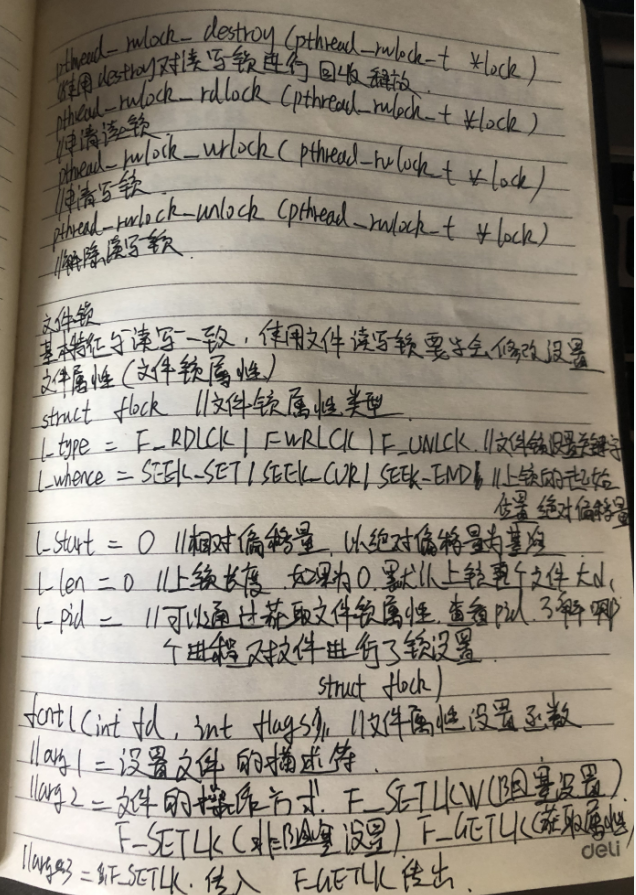 pthread_rwlock_destroy (pthread_rwlock_t *lock)
//使用destroy对读写锁进行回收释放.
pthread_rwlock_rdlock (pthread_rwlock_t *lock)
//申请读锁
pthread_rwlock_wrlock ( pthread_rwlock_t *lock)
//申请写锁.
pthread_rwlock_unlock (pthread_rwlock_t *lock)
//解除读写锁.
文件锁
基本特征与读写一致，使用文件读写锁要学会修改设置
文件属性(文件锁属性)
struct flock //文件锁属性类型.
l_type = F_RDLCK | FWRLCK | F_UNLCK. //文件锁设置关键字
l_whence = SEEK_SET | SEEK_CUR | SEEK_END //上锁的起始
位置 绝对偏移量
l_start = 0 //相对偏移量, 以绝对偏移量为基准
l_len = 0 //上锁长度, 如果为0, 默认上锁整个文件大小,
l_pid = //可以通过获取文件锁属性, 查看pid, 了解哪
个进程对文件进行了锁设置.
struct flock)
fcntl(int fd, int flags, //文件属性设置函数
//arg1 = 设置文件的描述符.
//arg2 = 文件的操作方式. F_SETLKW(阻塞设置)
F_SETLK(非阻塞设置) F_GETLK(获取属性)
deli
//arg3 = F_SETLK. 传入 F_GETLK 传出.